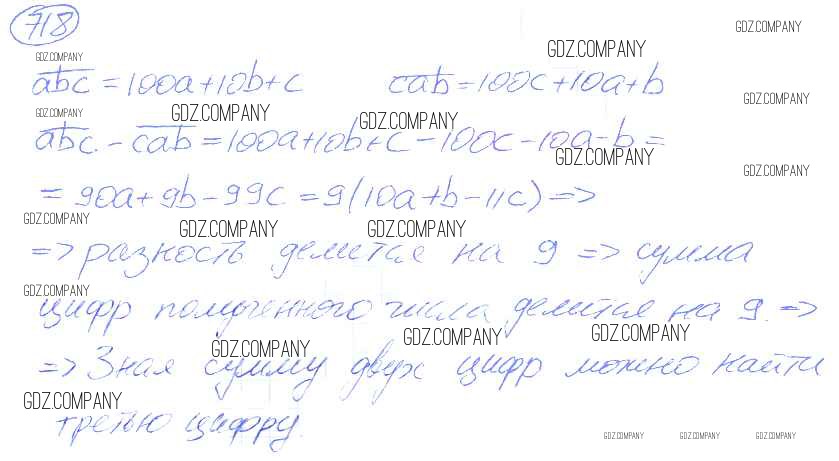 718
GDZ.COMPANY
GDZ.COMPANY
GDZ.COMPANY
abc = 100a+10b+c cab = 100c+10a+b
GDZ.COMPANY
GDZ.COMPANY
GDZ.COMPANY
GDZ.COMPANY
abc - cab = 100a+10b+c-100c-10a-b =
GDZ.COMPANY
GDZ.COMPANY
= 90a+9b-99c = 9(10a+b-11c) =>
GDZ.COMPANY
GDZ.COMPANY
GDZ.COMPANY
=> разность делится на 9 => сумма
GDZ.COMPANY
цифр полученного числа делится на 9 =>
GDZ.COMPANY
GDZ.COMPANY
GDZ.COMPANY
=> Зная сумму двух цифр можно найти
GDZ.COMPANY
третью цифру.
GDZ.COMPANY
GDZ.COMPANY
GDZ.COMPANY